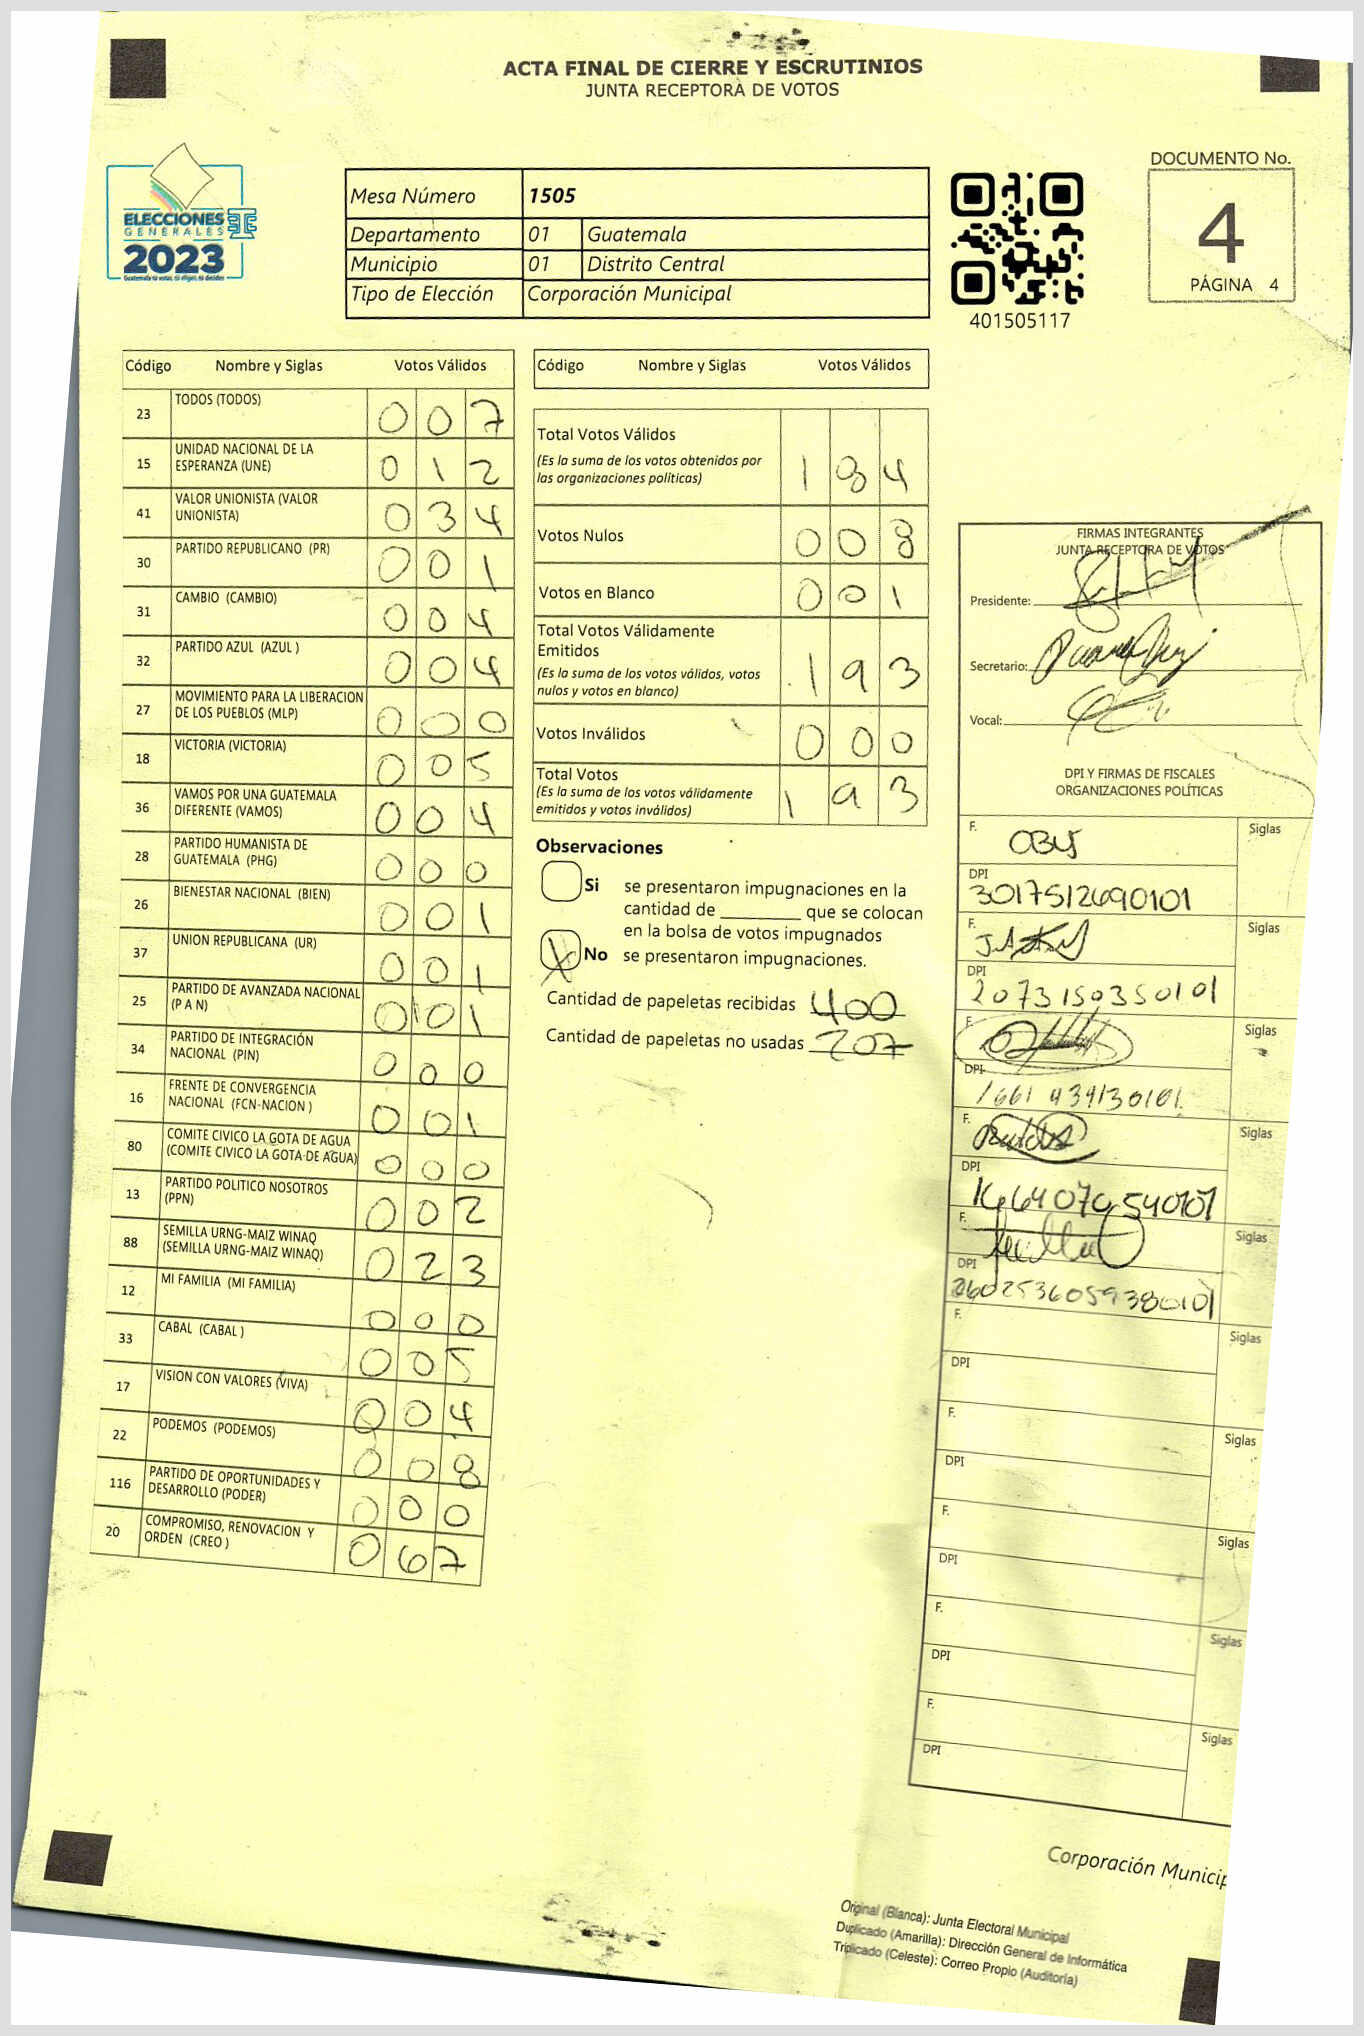 ACTA FINAL DE CIERRE Y ESCRUTINIOS
JUNTA RECEPTORA DE VOTOS
ELECCIONES
GENERALES
2023
Mesa Número 1505
Departamento 01 Guatemala
Municipio 01 Distrito Central
Tipo de Elección Corporación Municipal
401505117
DOCUMENTO No.
4
PÁGINA 4
Código Nombre y Siglas Votos Válidos
23 TODOS (TODOS) 0 0 7
15 UNIDAD NACIONAL DE LA
ESPERANZA (UNE) 0 1 2
41 VALOR UNIONISTA (VALOR
UNIONISTA) 0 3 4
30 PARTIDO REPUBLICANO (PR) 0 0 1
31 CAMBIO (CAMBIO) 0 0 4
32 PARTIDO AZUL (AZUL ) 0 0 4
27 MOVIMIENTO PARA LA LIBERACION
DE LOS PUEBLOS (MLP) 0 0 0
18 VICTORIA (VICTORIA) 0 0 5
36 VAMOS POR UNA GUATEMALA
DIFERENTE (VAMOS) 0 0 4
28 PARTIDO HUMANISTA DE
GUATEMALA (PHG) 0 0 0
26 BIENESTAR NACIONAL (BIEN) 0 0 1
37 UNION REPUBLICANA (UR) 0 0 1
25 PARTIDO DE AVANZADA NACIONAL
(P A N) 0 0 1
34 PARTIDO DE INTEGRACIÓN
NACIONAL (PIN) 0 0 0
16 FRENTE DE CONVERGENCIA
NACIONAL (FCN-NACION ) 0 0 1
80 COMITE CIVICO LA GOTA DE AGUA
(COMITE CIVICO LA GOTA DE AGUA) 0 0 0
13 PARTIDO POLITICO NOSOTROS
(PPN) 0 0 2
88 SEMILLA URNG-MAIZ WINAQ
(SEMILLA URNG-MAIZ WINAQ) 0 2 3
12 MI FAMILIA (MI FAMILIA) 0 0 0
33 CABAL (CABAL ) 0 0 5
17 VISION CON VALORES (VIVA) 0 0 4
22 PODEMOS (PODEMOS) 0 0 8
116 PARTIDO DE OPORTUNIDADES Y
DESARROLLO (PODER) 0 0 0
20 COMPROMISO, RENOVACION Y
ORDEN (CREO ) 0 6 7
Código Nombre y Siglas Votos Válidos
Total Votos Válidos
(Es la suma de los votos obtenidos por
las organizaciones políticas) 1 8 4
Votos Nulos 0 0 8
Votos en Blanco 0 0 1
Total Votos Válidamente
Emitidos
(Es la suma de los votos válidos, votos
nulos y votos en blanco) 1 9 3
Votos Inválidos 0 0 0
Total Votos
(Es la suma de los votos válidamente
emitidos y votos inválidos) 1 9 3
Observaciones
Si se presentaron impugnaciones en la
cantidad de ________ que se colocan
en la bolsa de votos impugnados
X No se presentaron impugnaciones.
Cantidad de papeletas recibidas 400
Cantidad de papeletas no usadas 207
FIRMAS INTEGRANTES
JUNTA RECEPTORA DE VOTOS
Presidente:
Secretario:
Vocal:
DPI Y FIRMAS DE FISCALES
ORGANIZACIONES POLÍTICAS
F. Siglas
DPI
3017512690101
F. Siglas
DPI
2073150350101
F. Siglas
DPI
F. Siglas
DPI
F. Siglas
DPI
F. Siglas
DPI
F. Siglas
DPI
F. Siglas
DPI
F. Siglas
DPI
F. Siglas
DPI
Corporación Municip
Original (Blanca): Junta Electoral Municipal
Duplicado (Amarilla): Dirección General de Informática
Triplicado (Celeste): Correo Propio (Auditoría)